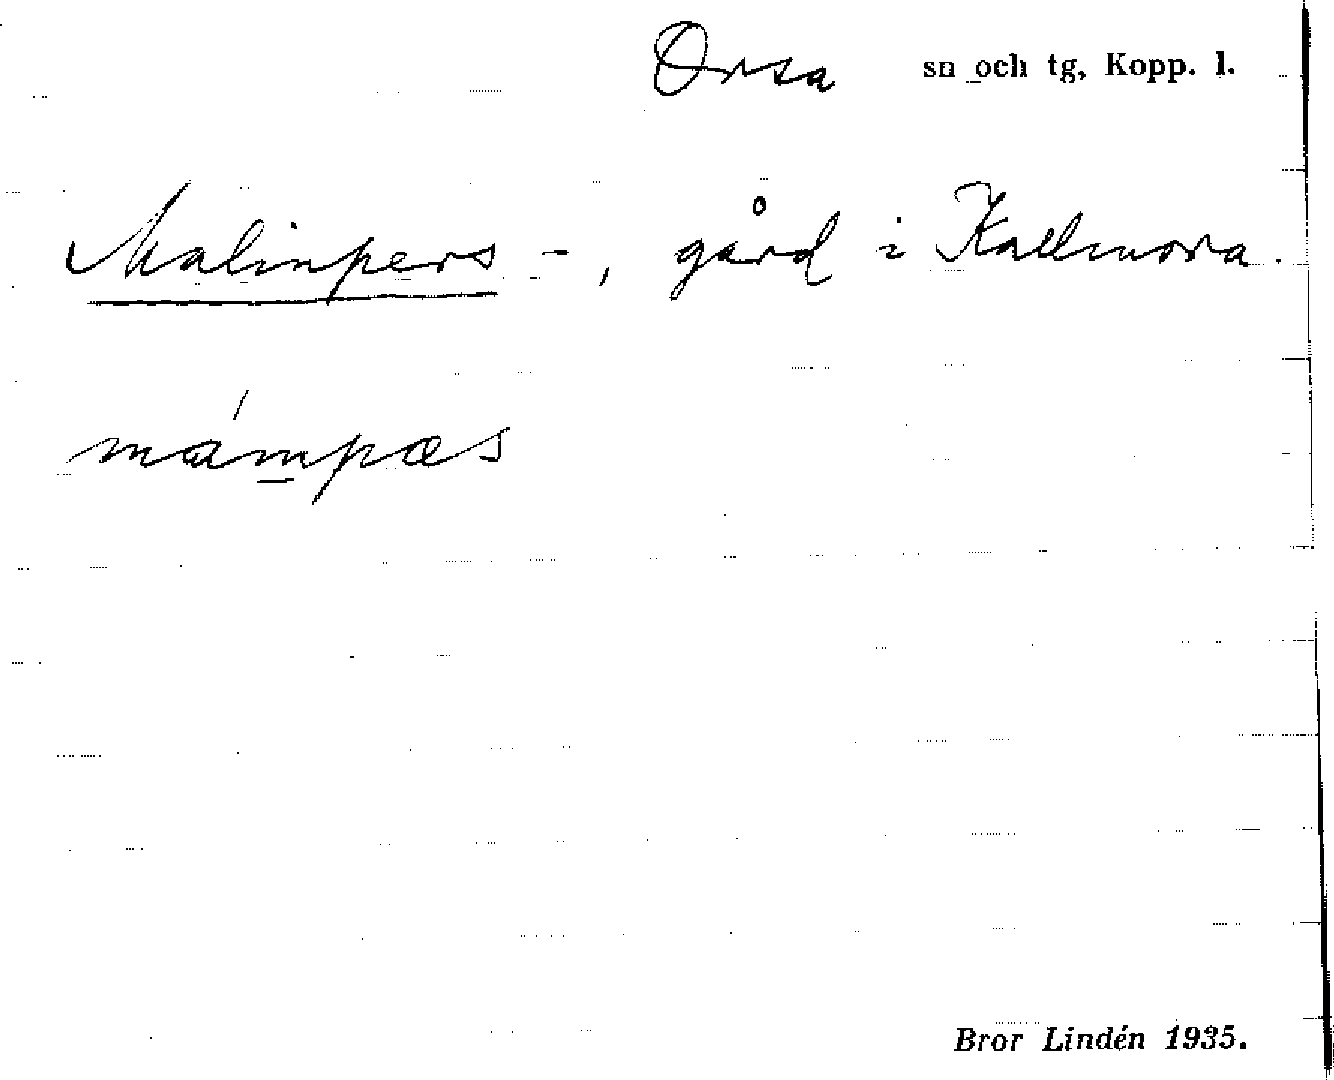 Orsa sn och tg, Kopp. l.
Malinpers -, gård i Kallmora.
mám̱pæs
Bror Lindén 1935.